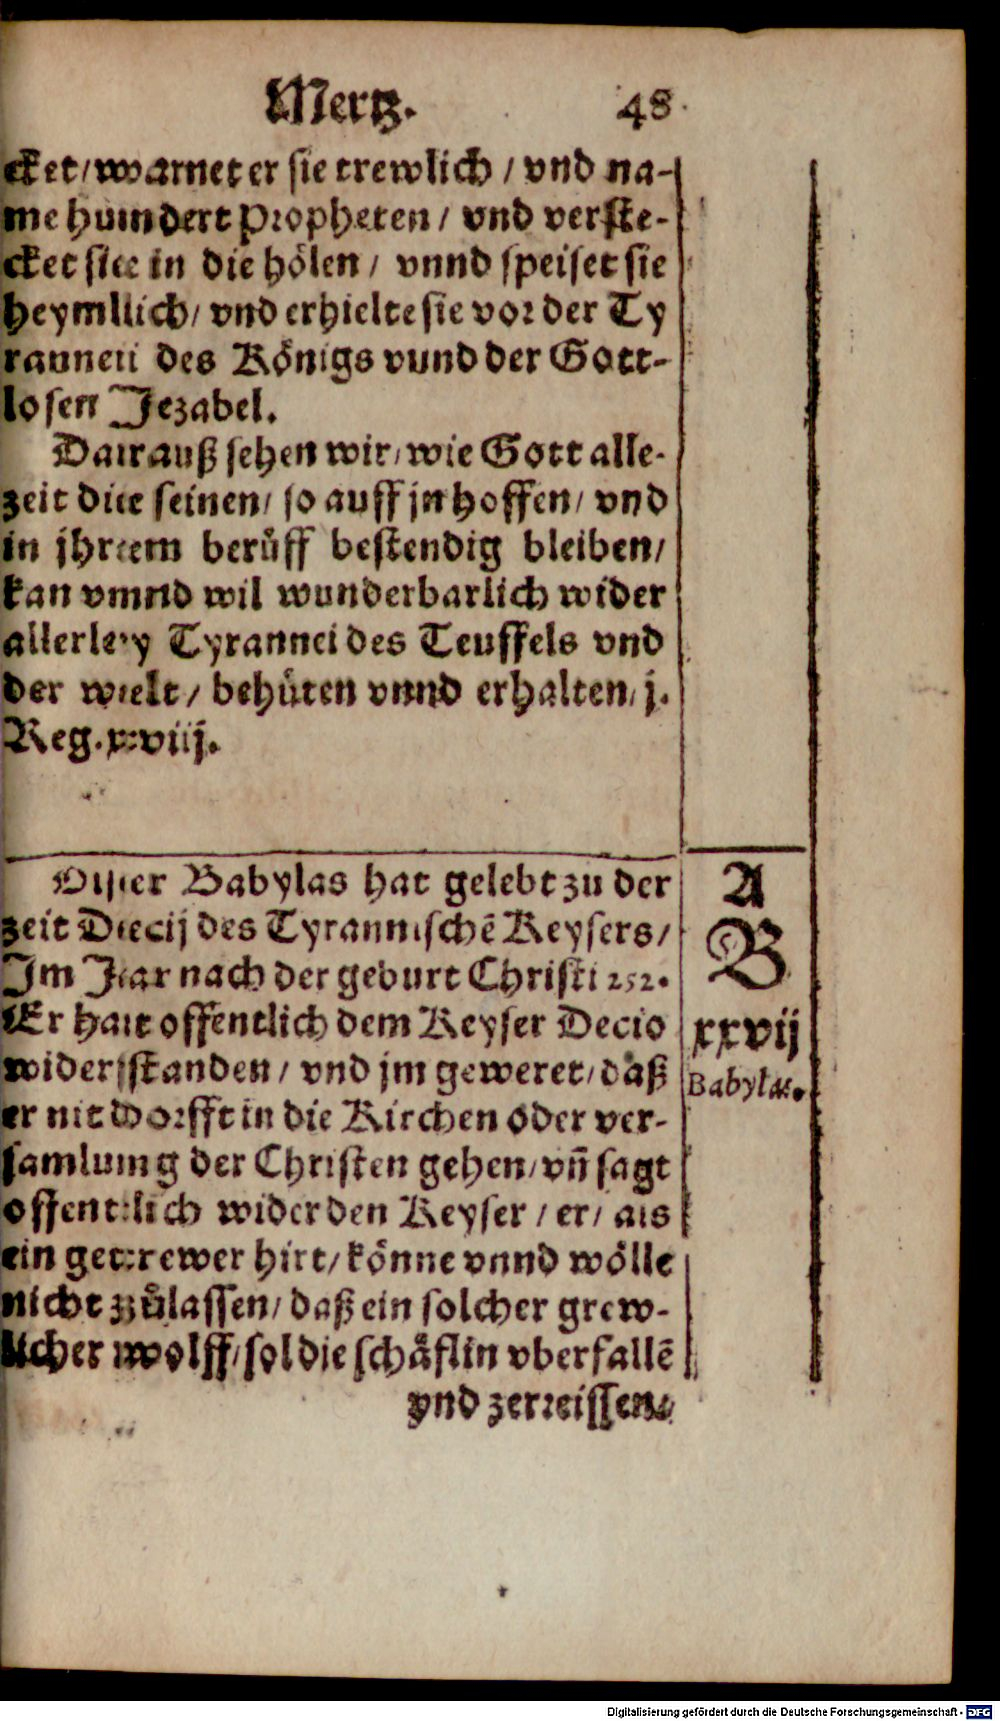 Mertz. 48
cket/ warnet er sie trewlich / vnd na-
me hundert Propheten / vnd verste-
cket sie in die hölen / vnnd speiset sie
heymlich/ vnd erhielte sie vor der Ty
rannen des Königs vnnd der Gott-
losen Jezabel.
Darauß sehen wir/ wie Gott alle-
zeit die seinen/ so auff jn hoffen/ vnd
in jhrem berůff bestendig bleiben/
kan vnnd wil wunderbarlich wider
allerley Tyrannei des Teuffels vnd
der welt / behüten vnnd erhalten/ j.
Reg. xviij.
Diser Babylas hat gelebt zu der
zeit Decij des Tyrannischē Keysers/
Im Jar nach der geburt Christi 252.
Er hat offentlich dem Keyser Decio
widerstanden / vnd jm geweret/ daß
er nit dorfft in die Kirchen oder ver-
samlung der Christen gehen/ vñ sagt
offentlich wider den Keyser / er/ als
ein getrewer hirt/ könne vnnd wölle
nicht zůlassen/ daß ein solcher grew-
licher wolff/ sol die schäflin vberfallē
vnd zerreissen.
A
B
xxvij
Babylas.
Digitalisierung gefördert durch die Deutsche Forschungsgemeinschaft - DFG